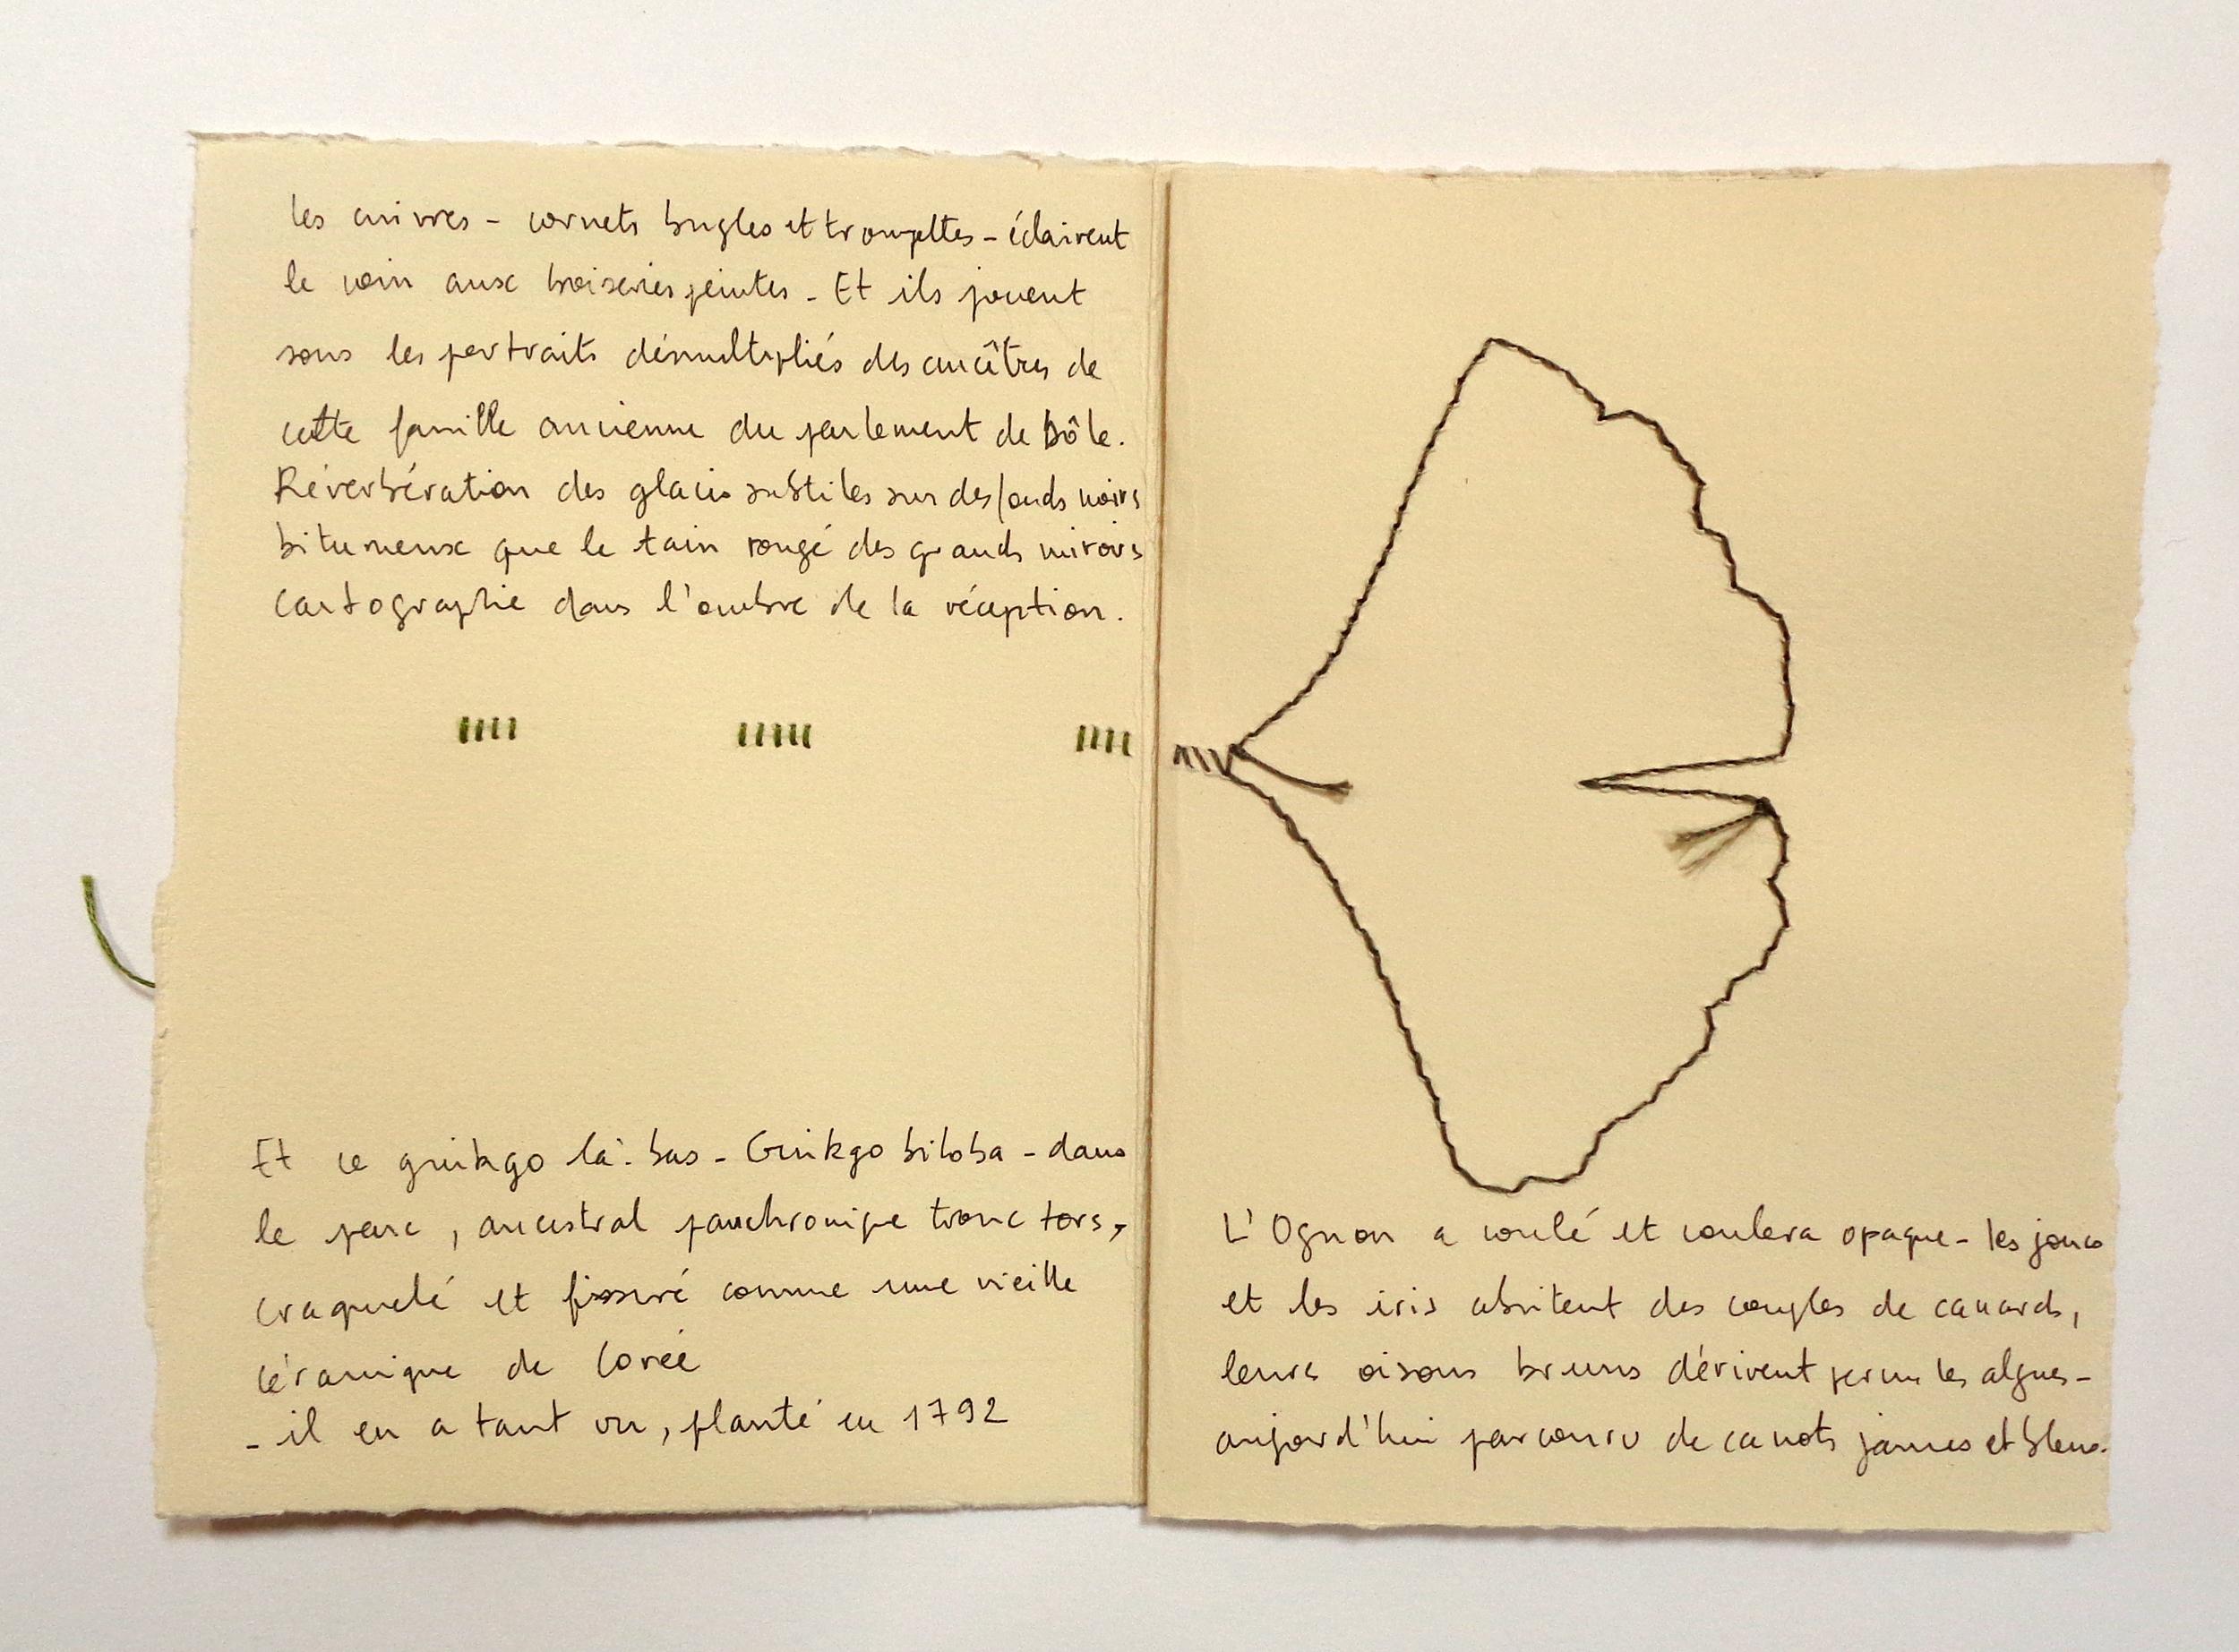 les cuivres - cornets bugles et trompettes - éclairent
le coin aux boiseries peintes - Et ils jouent
sous les portraits démultipliés des ancêtres de
cette famille ancienne du parlement de Dôle.
Réverbération des glacis subtiles sur des fonds noirs
bitumeux que le tain rongé des grands miroirs
cartographie dans l'ombre de la réception.
Et ce ginkgo là-bas - Ginkgo biloba - dans
le parc, ancestral panchronique tronc tors,
craquelé et fissuré comme une vieille
céramique de Corée
- il en a tant vu, planté en 1792
L'Ognon a coulé et coulera opaque - les joncs
et les iris abritent des couples de canards,
leurs oisons bruns dérivent parmi les algues -
aujourd'hui parcouru de canots jaunes et bleus.